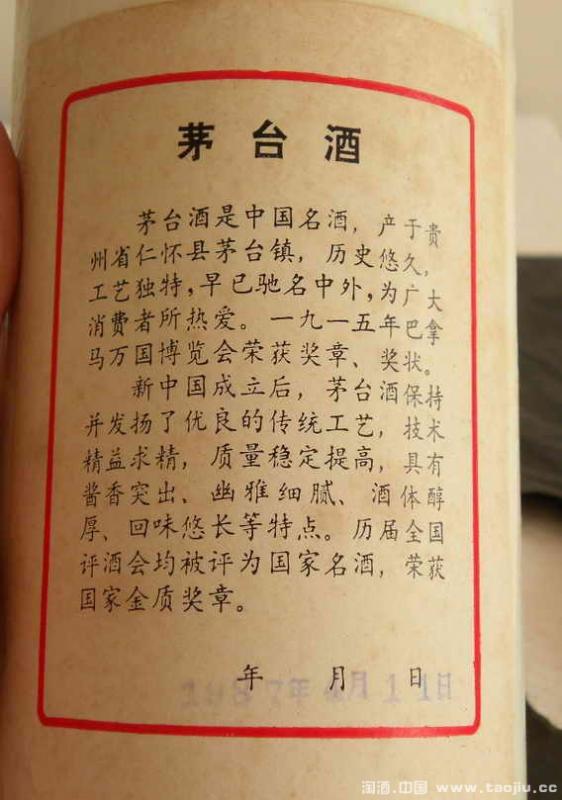 茅台酒
茅台酒是中国名酒，产于贵
州省仁怀县茅台镇，历史悠久，
工艺独特，早已驰名中外，为广大
消费者所热爱。一九一五年巴拿
马万国博览会荣获奖章、奖状。
新中国成立后，茅台酒保持
并发扬了优良的传统工艺，技术
精益求精，质量稳定提高，具有
酱香突出、幽雅细腻、酒体醇
厚、回味悠长等特点。历届全国
评酒会均被评为国家名酒，荣获
国家金质奖章。
年 月 日
1987年 月11日
淘酒.中国 www.taojiu.cc